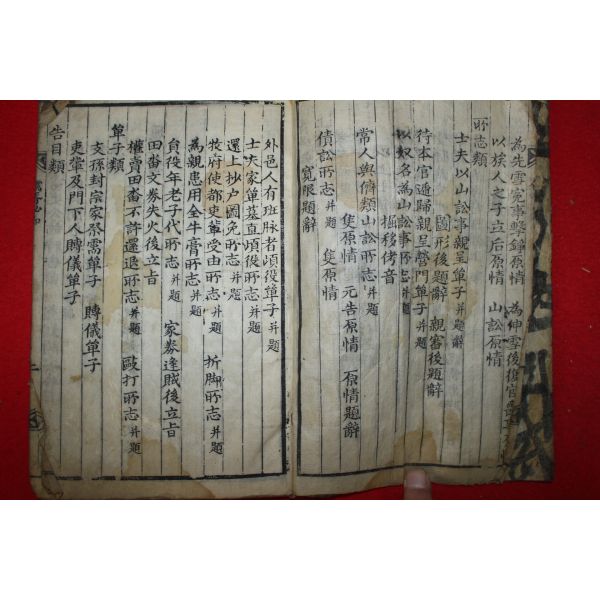 為先雪冤事擊錚原情 為伸雪後復官
以族人之子立后原情 山訟原情
所志類
士夫以山訟事親呈單子并題辭
圖形後題辭 親審後題辭
待本官遞歸親呈營門單子并題
以奴名為山訟事所志并題
掘移侤音
常人與儕類山訟所志并題
隻原情 元告原情 原情題辭
債訟所志并題 隻原情
寃眼題辭
外邑人有班脉者頉役單子并題
士夫家單墓直頉役所志并題
還上抄戶圖免所志并題
牧府使都吏輩受由所志并題 折脚所志并題
為親患用全牛膏所志并題
負役年老子代所志并題 家券逢賊後立旨
田畓文券失火後立旨
權賣田畓不許還退所志并題 毆打所志并題
單子類
支孫封宗家祭需單子 賻儀單子
吏輩及門下人賻儀單子
告目類